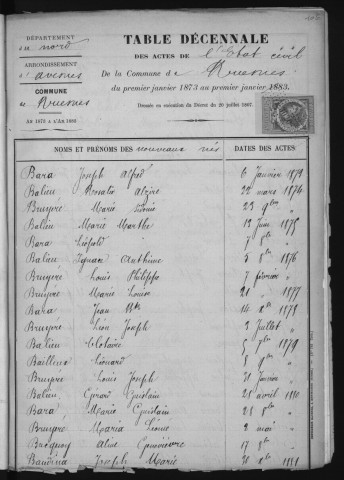 DÉPARTEMENT
du Nord
ARRONDISSEMENT
d'Avesnes
COMMUNE
de Ruesnes
An 1873 à l'An 1882
TABLE DÉCENNALE
DES ACTES DE l'Etat civil
De la Commune de Ruesnes
du premier janvier 1873 au premier janvier 1883.
Dressée en exécution du Décret du 20 juillet 1807.
NOMS ET PRÉNOMS DES nouveaux nés DATES DES ACTES
Bara Joseph Alfred 6 Janvier 1873
Balieu Rosalie Alzire 22 mars 1874
Bruyère Marie 23 9bre "
Balieu Marie Marthe 13 Juin 1875
Bara Léopold 7 8bre "
Balieu Ignace Anthime 3 8bre 1876
Bruyère Louis Philippe 7 février "
Bruyère Marie Louise 21 " 1877
Bara Jean Bte 14 Xbre 1878
Bruyère Léon Joseph 3 Juillet "
Balieu Clotaire 5 7bre 1879
Bailleux Léonard 8 9bre "
Bruyère Louis Joseph 31 Janvier "
Balieu Gérard Ghislain 21 avril 1880
Bara Marie Ghislain 21 8bre "
Bruyère Maria Léonie 2 mai "
Bricquoy Aline Geneviève 17 8bre "
Joseph Marie 30 Xbre 1881